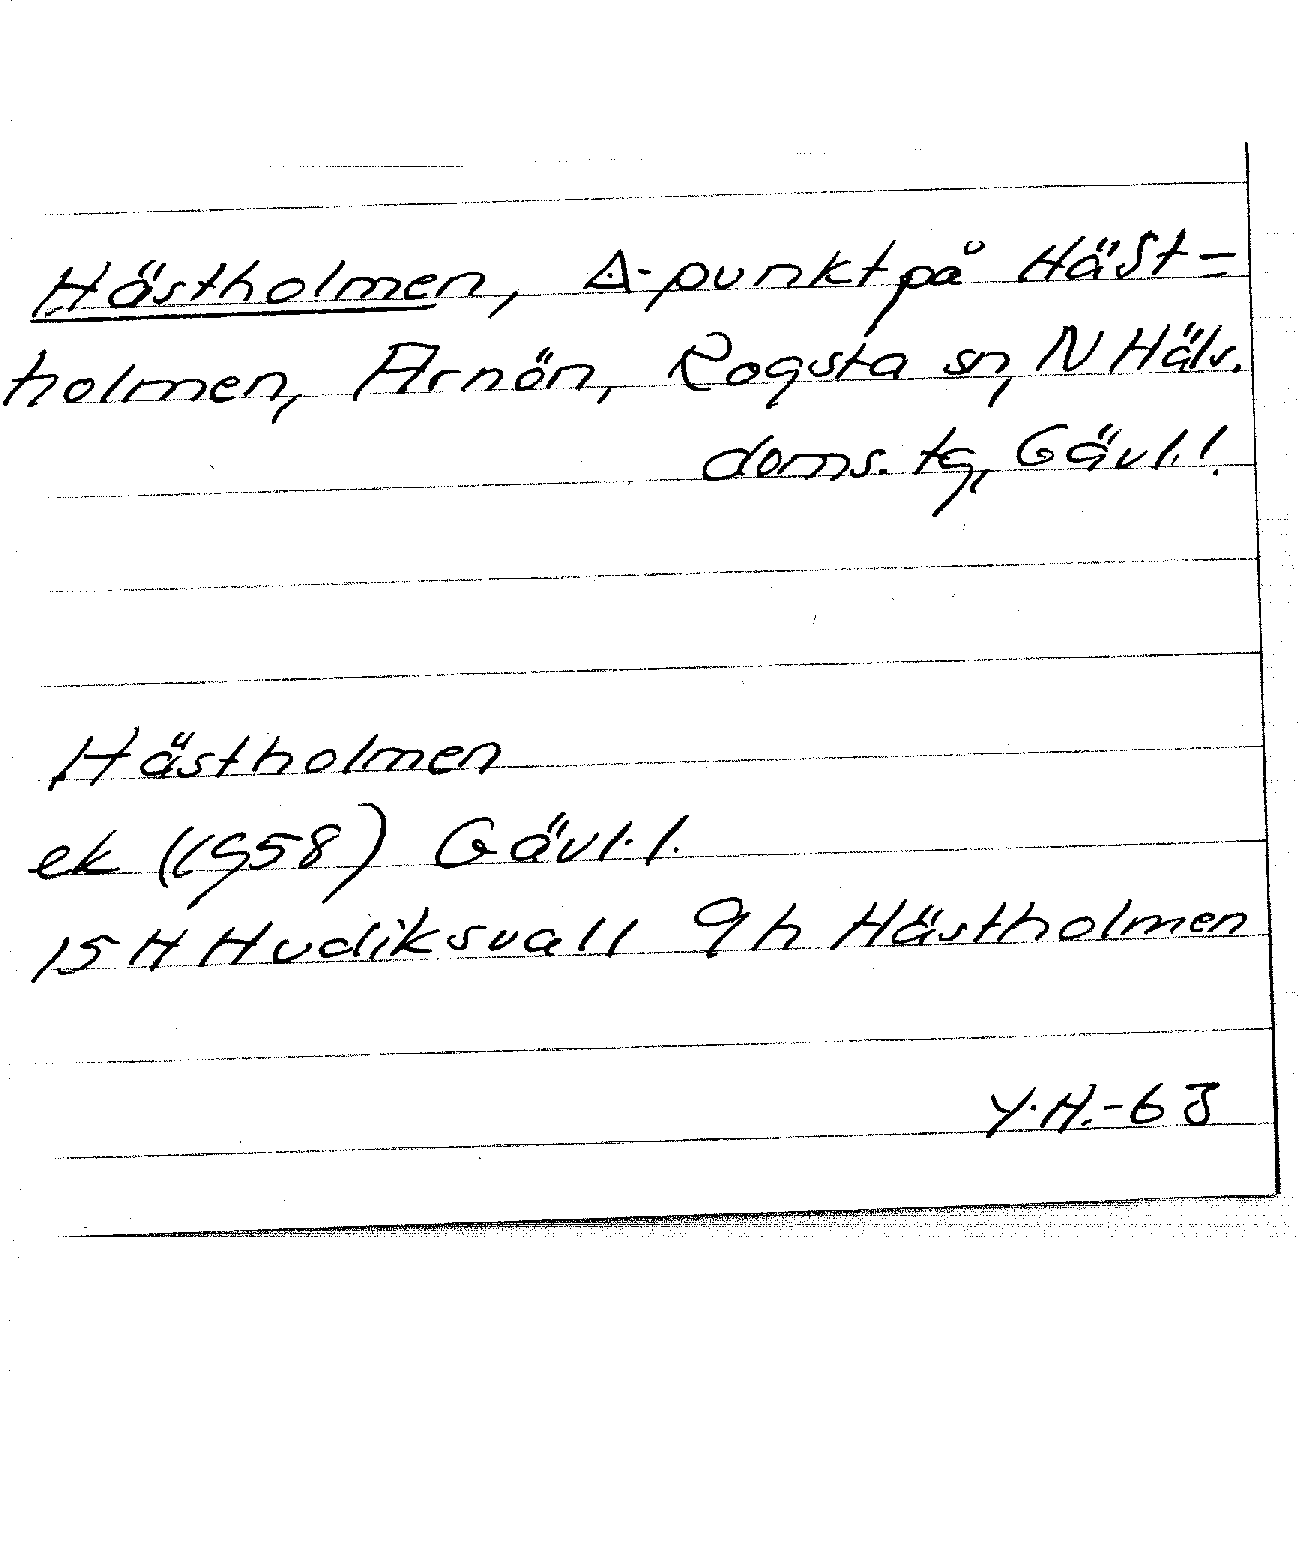 Hästholmen, △-punkt på Häst=
holmen, Arnön, Rogsta sn, N Häls.
doms. tg, Gävl.l.
Hästholmen
ek (1958) Gävl.l.
15H Hudiksvall 9h Hästholmen
Y.H.-63